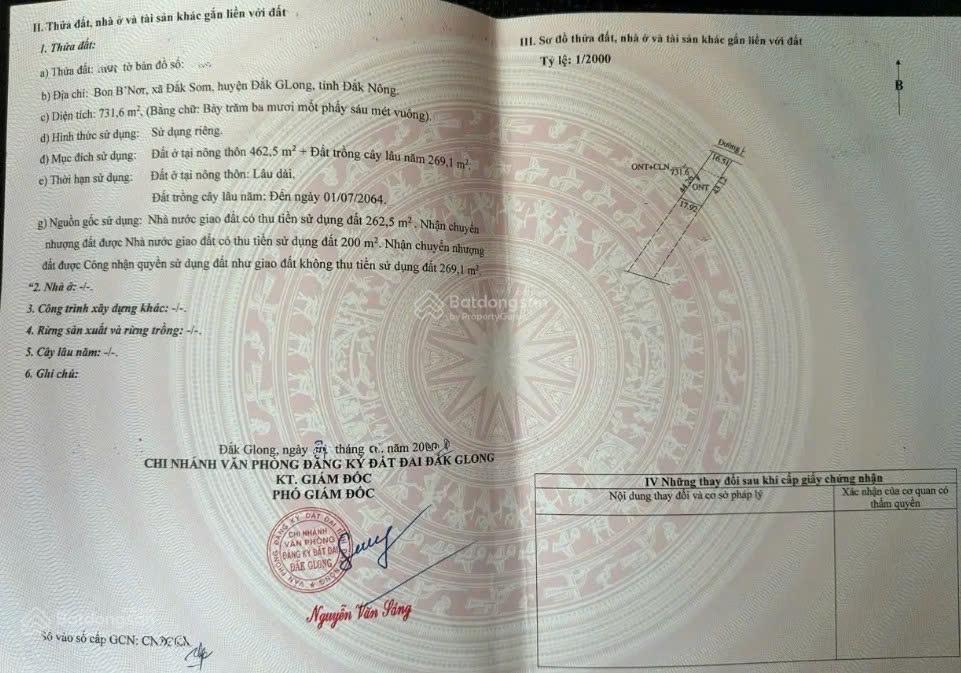 II. Thửa đất, nhà ở và tài sản khác gắn liền với đất
1. Thửa đất:
a) Thửa đất: tờ bản đồ số:
b) Địa chỉ: Bon B'Nơr, xã Đắk Som, huyện Đắk GLong, tỉnh Đắk Nông.
c) Diện tích: 731,6 m², (Bằng chữ: Bảy trăm ba mươi mốt phẩy sáu mét vuông).
d) Hình thức sử dụng: Sử dụng riêng.
đ) Mục đích sử dụng: Đất ở tại nông thôn 462,5 m² + Đất trồng cây lâu năm 269,1 m².
e) Thời hạn sử dụng: Đất ở tại nông thôn: Lâu dài.
Đất trồng cây lâu năm: Đến ngày 01/07/2064.
g) Nguồn gốc sử dụng: Nhà nước giao đất có thu tiền sử dụng đất 262,5 m². Nhận chuyển
nhượng đất được Nhà nước giao đất có thu tiền sử dụng đất 200 m². Nhận chuyển nhượng
đất được Công nhận quyền sử dụng đất như giao đất không thu tiền sử dụng đất 269,1 m².
"2. Nhà ở: -/-.
3. Công trình xây dựng khác: -/-.
4. Rừng sản xuất và rừng trồng: -/-.
5. Cây lâu năm: -/-.
6. Ghi chú:
Đắk Glong, ngày tháng năm
CHI NHÁNH VĂN PHÒNG ĐĂNG KÝ ĐẤT ĐAI ĐẮK GLONG
KT. GIÁM ĐỐC
PHÓ GIÁM ĐỐC
CHI NHÁNH
VĂN PHÒNG
ĐĂNG KÝ ĐẤT ĐAI
ĐẮK GLONG
Nguyễn Văn Sáng
Số vào sổ cấp GCN:
III. Sơ đồ thửa đất, nhà ở và tài sản khác gắn liền với đất
Tỷ lệ: 1/2000
B
Đường
16.51
ONT+CLN 731.6
44.26
ONT
43.12
17.92
Batdongsan
by PropertyGuru
IV Những thay đổi sau khi cấp giấy chứng nhận
Nội dung thay đổi và cơ sở pháp lý
Xác nhận của cơ quan có
thẩm quyền